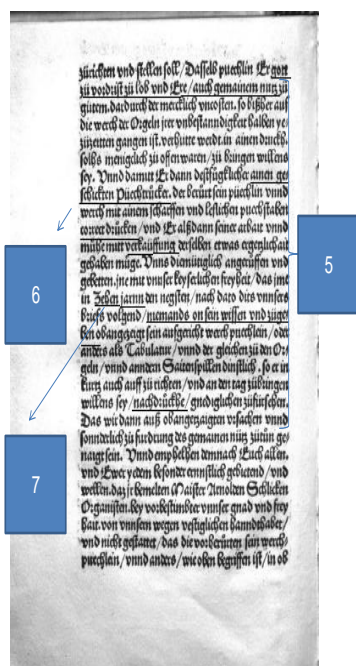 zůrichten vnd stellen soll/Dasselb puechlin Er gott
zů vordrist zů lob vnd Ere/auch gemainem nutz zů
gůtem. dardurch der mercklich vncosten. so bißher auf
die werch der Orgeln jrer vnbestanndigkeit halben ye
zůzeiten gangen ist. verhutte werdt. in ainen druckh.
solhs menigclich zů offenwaren/zů bringen willens
sey. Vnnd damit Er dann destfůglicher ainen ge
schickten Půechtrucker. der berůrt sein půchlin vnnd
werch mit ainen scharffen und leslichen půchstaben
correct drucken/vnd Er alßdann seiner arbait vnnd
mühe mitt verkauffung derselben etwas ergetzlichait
gehaben müge. Vnns diemütiglich angerüffen vnd
gebetten. jne mit vnnser keyserlichen freyheit/das jme
in Zehen jarnn den negsten/nach dato diß vnnsers
briefs volgend/niemands on sein wissen vnd zůge
ben obangezaigt sein aufgericht werch puechlein/oder
anders als Tabulatur/vnnd der gleichen zů den Or
geln/vnnd anndern Saitenspillen dinstlich. so er in
kurtz auch auff zů richten/vnd an den tag zůbringen
willens sey/nachdrückhe/gnediglichen zůfürsehen.
Das wir dann auß obangezaigten vrsachen vnnd
sonnderlich zů furdrung des gemainen nutz zůtůn ge
naigt sein. Vnnd empfelhen demnach Euch allen.
vnd Ewer yedem besonder ernnstlich gebietend/vnd
wellen. daz jr bemelten Maister Arnolden Schlicken
Organisten. bey vorbestimbter vnnser gnad vnd frey
hait. von vnnsern wegen vestiglichen hanndthabet/
vnd nicht gestattet/das die vorberürten sein werch
puechlain/vnnd anders/wie oben begriffen ist/in ob
5
6
7